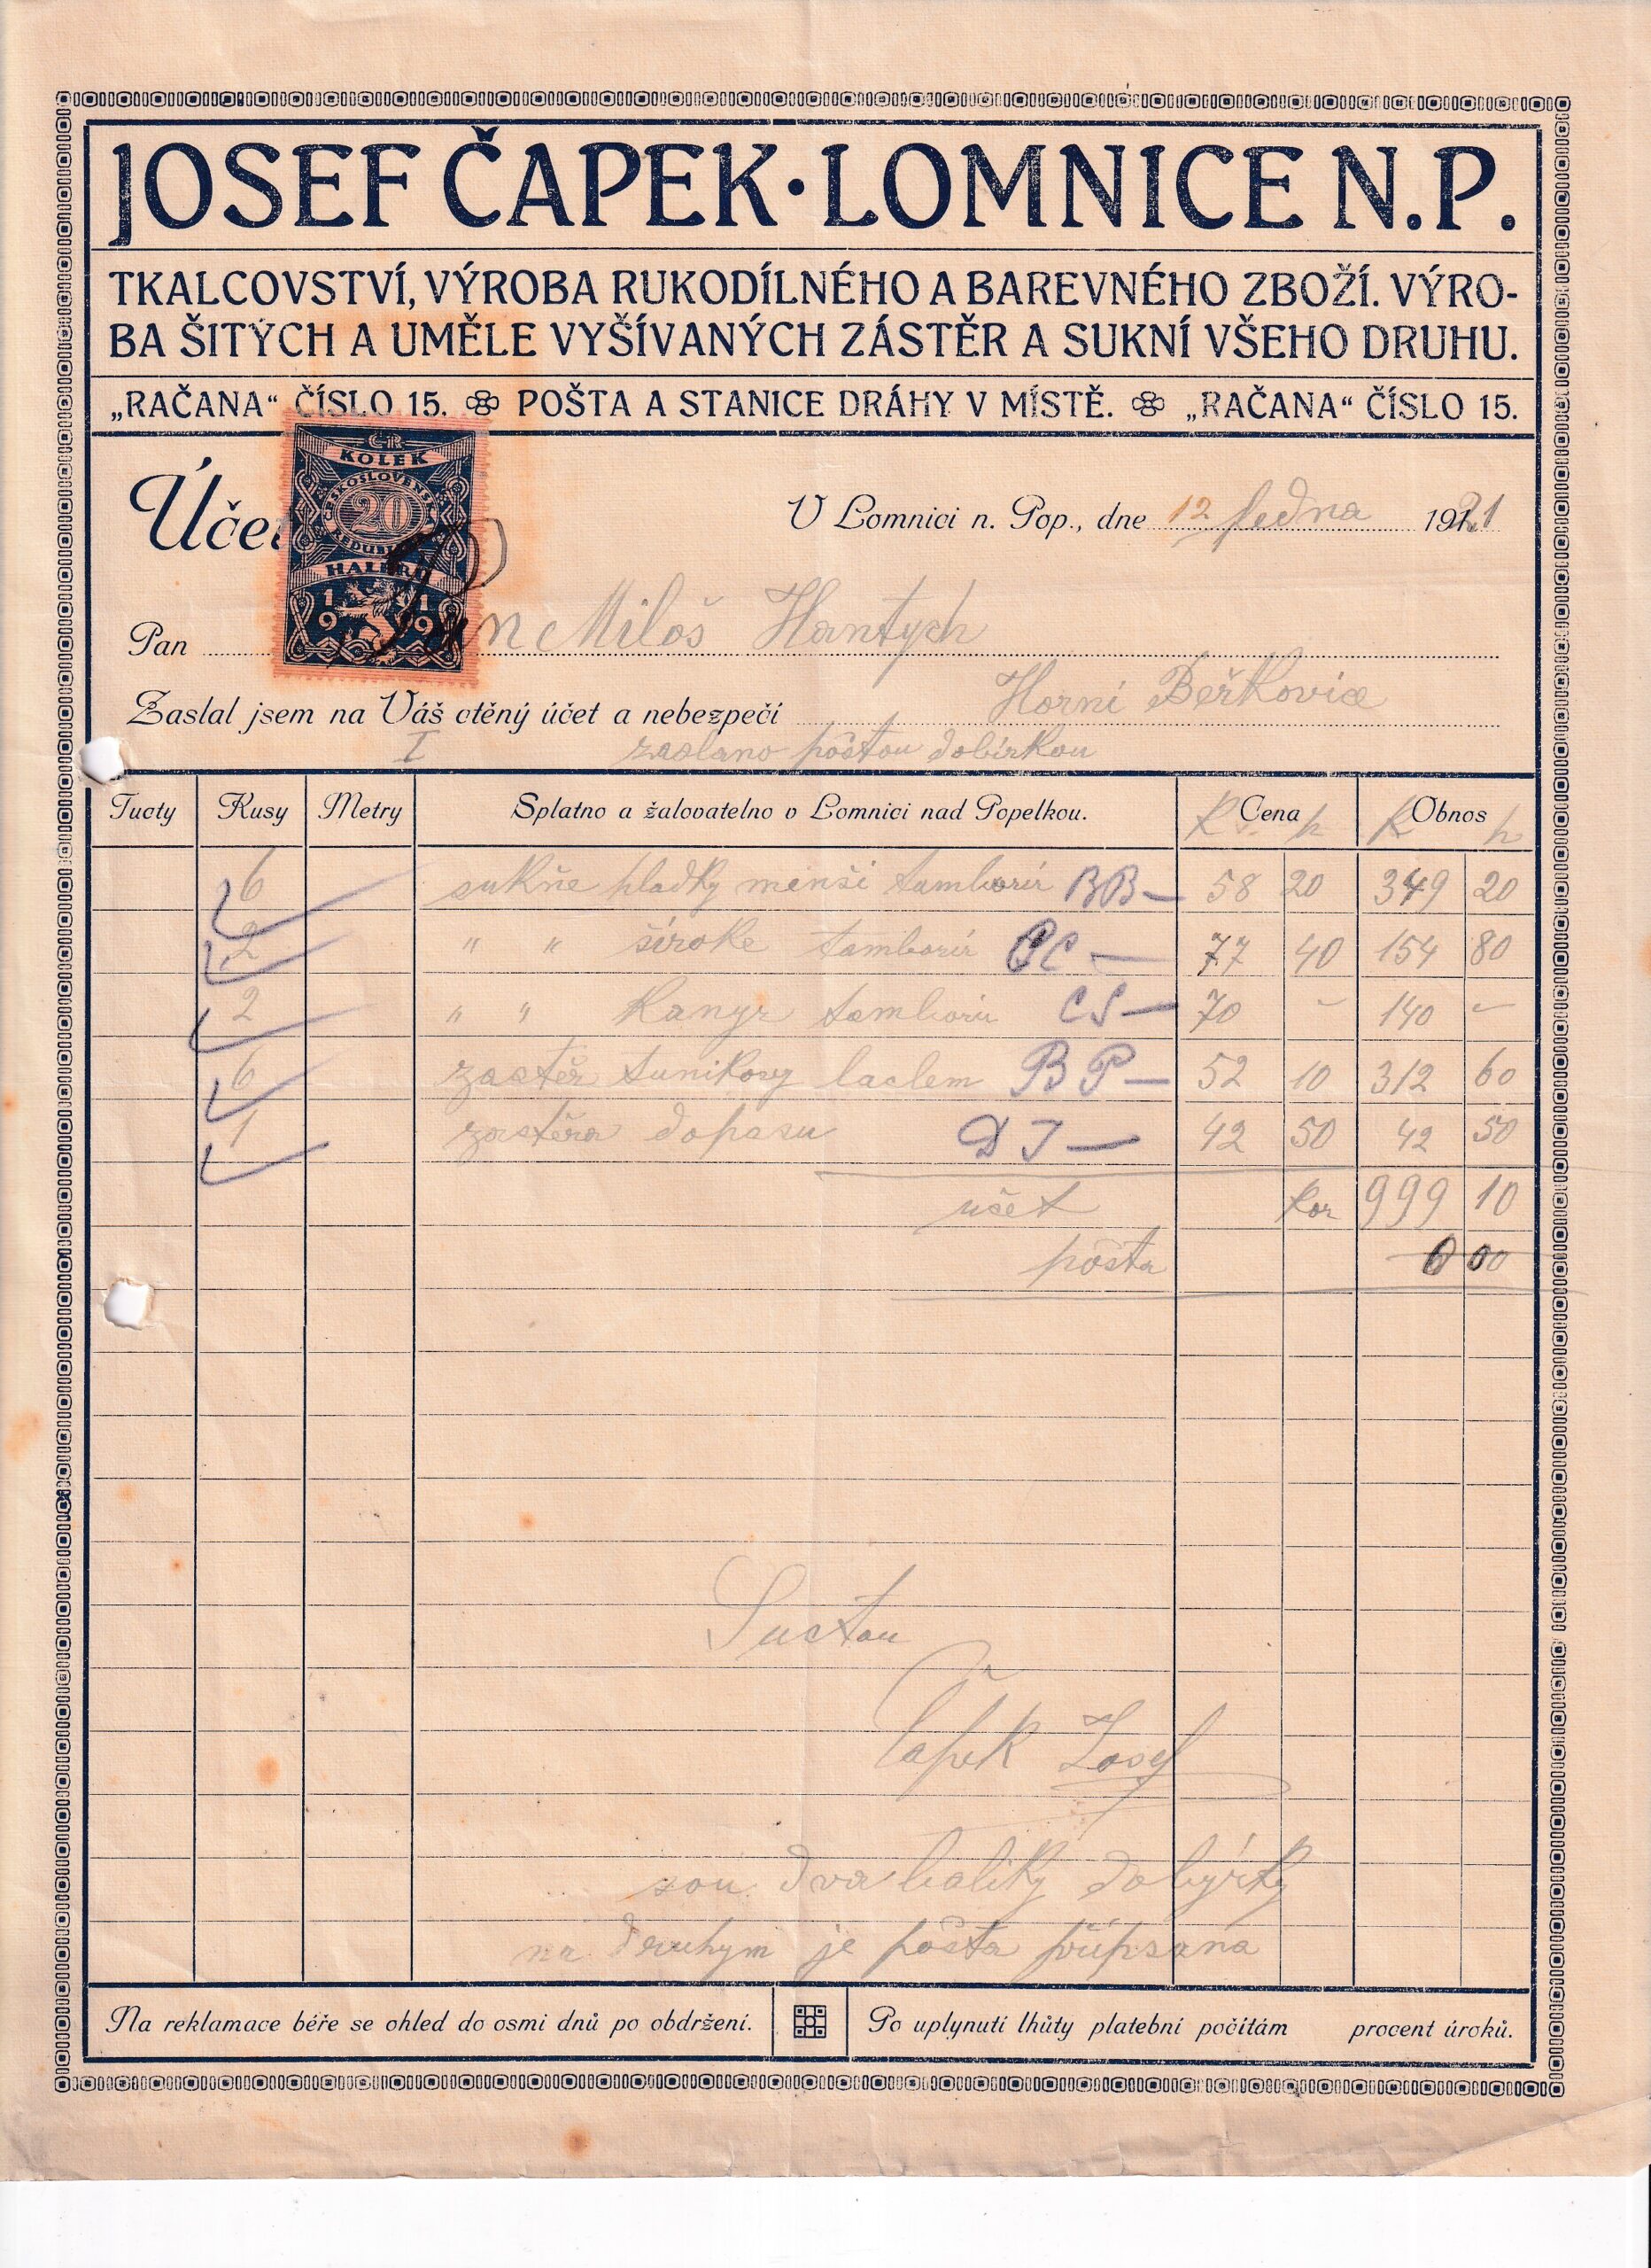 JOSEF ČAPEK · LOMNICE N.P.
TKALCOVSTVÍ, VÝROBA RUKODÍLNÉHO A BAREVNÉHO ZBOŽÍ. VÝRO-
BA ŠITÝCH A UMĚLE VYŠÍVANÝCH ZÁSTĚR A SUKNÍ VŠEHO DRUHU.
„RAČANA“ ČÍSLO 15. POŠTA A STANICE DRÁHY V MÍSTĚ. „RAČANA“ ČÍSLO 15.
ČR
KOLEK
ČESKOSLOVENSKÁ
20
REPUBLIKA
HALÉŘŮ
19 19
Účet
V Lomnici n. Pop., dne 12 ledna 1921
Pan Miloš Hantych
Horni Beřkovice
Zaslal jsem na Váš ctěný účet a nebezpečí
I zaslano poštou dobírkou
Tucty Kusy Metry Splatno a žalovatelno v Lomnici nad Popelkou. K Cena h K Obnos h
6 sukňe hladky menši BB— 58 20 349 20
2 " " široke CC — 77 40 154 80
2 " " Kanyr CS— 70 - 140 -
6 zastěr tunikovy laclem BP— 52 10 312 60
1 zastěra dopasu DJ— 42 50 42 50
učet Kor 999 10
pošta 0 00
Suctou
Čapek Josef
sou dva baliky dobyrky
na druhym je pošta připsana
Na reklamace béře se ohled do osmi dnů po obdržení.
Po uplynutí lhůty platební počítám procent úroků.